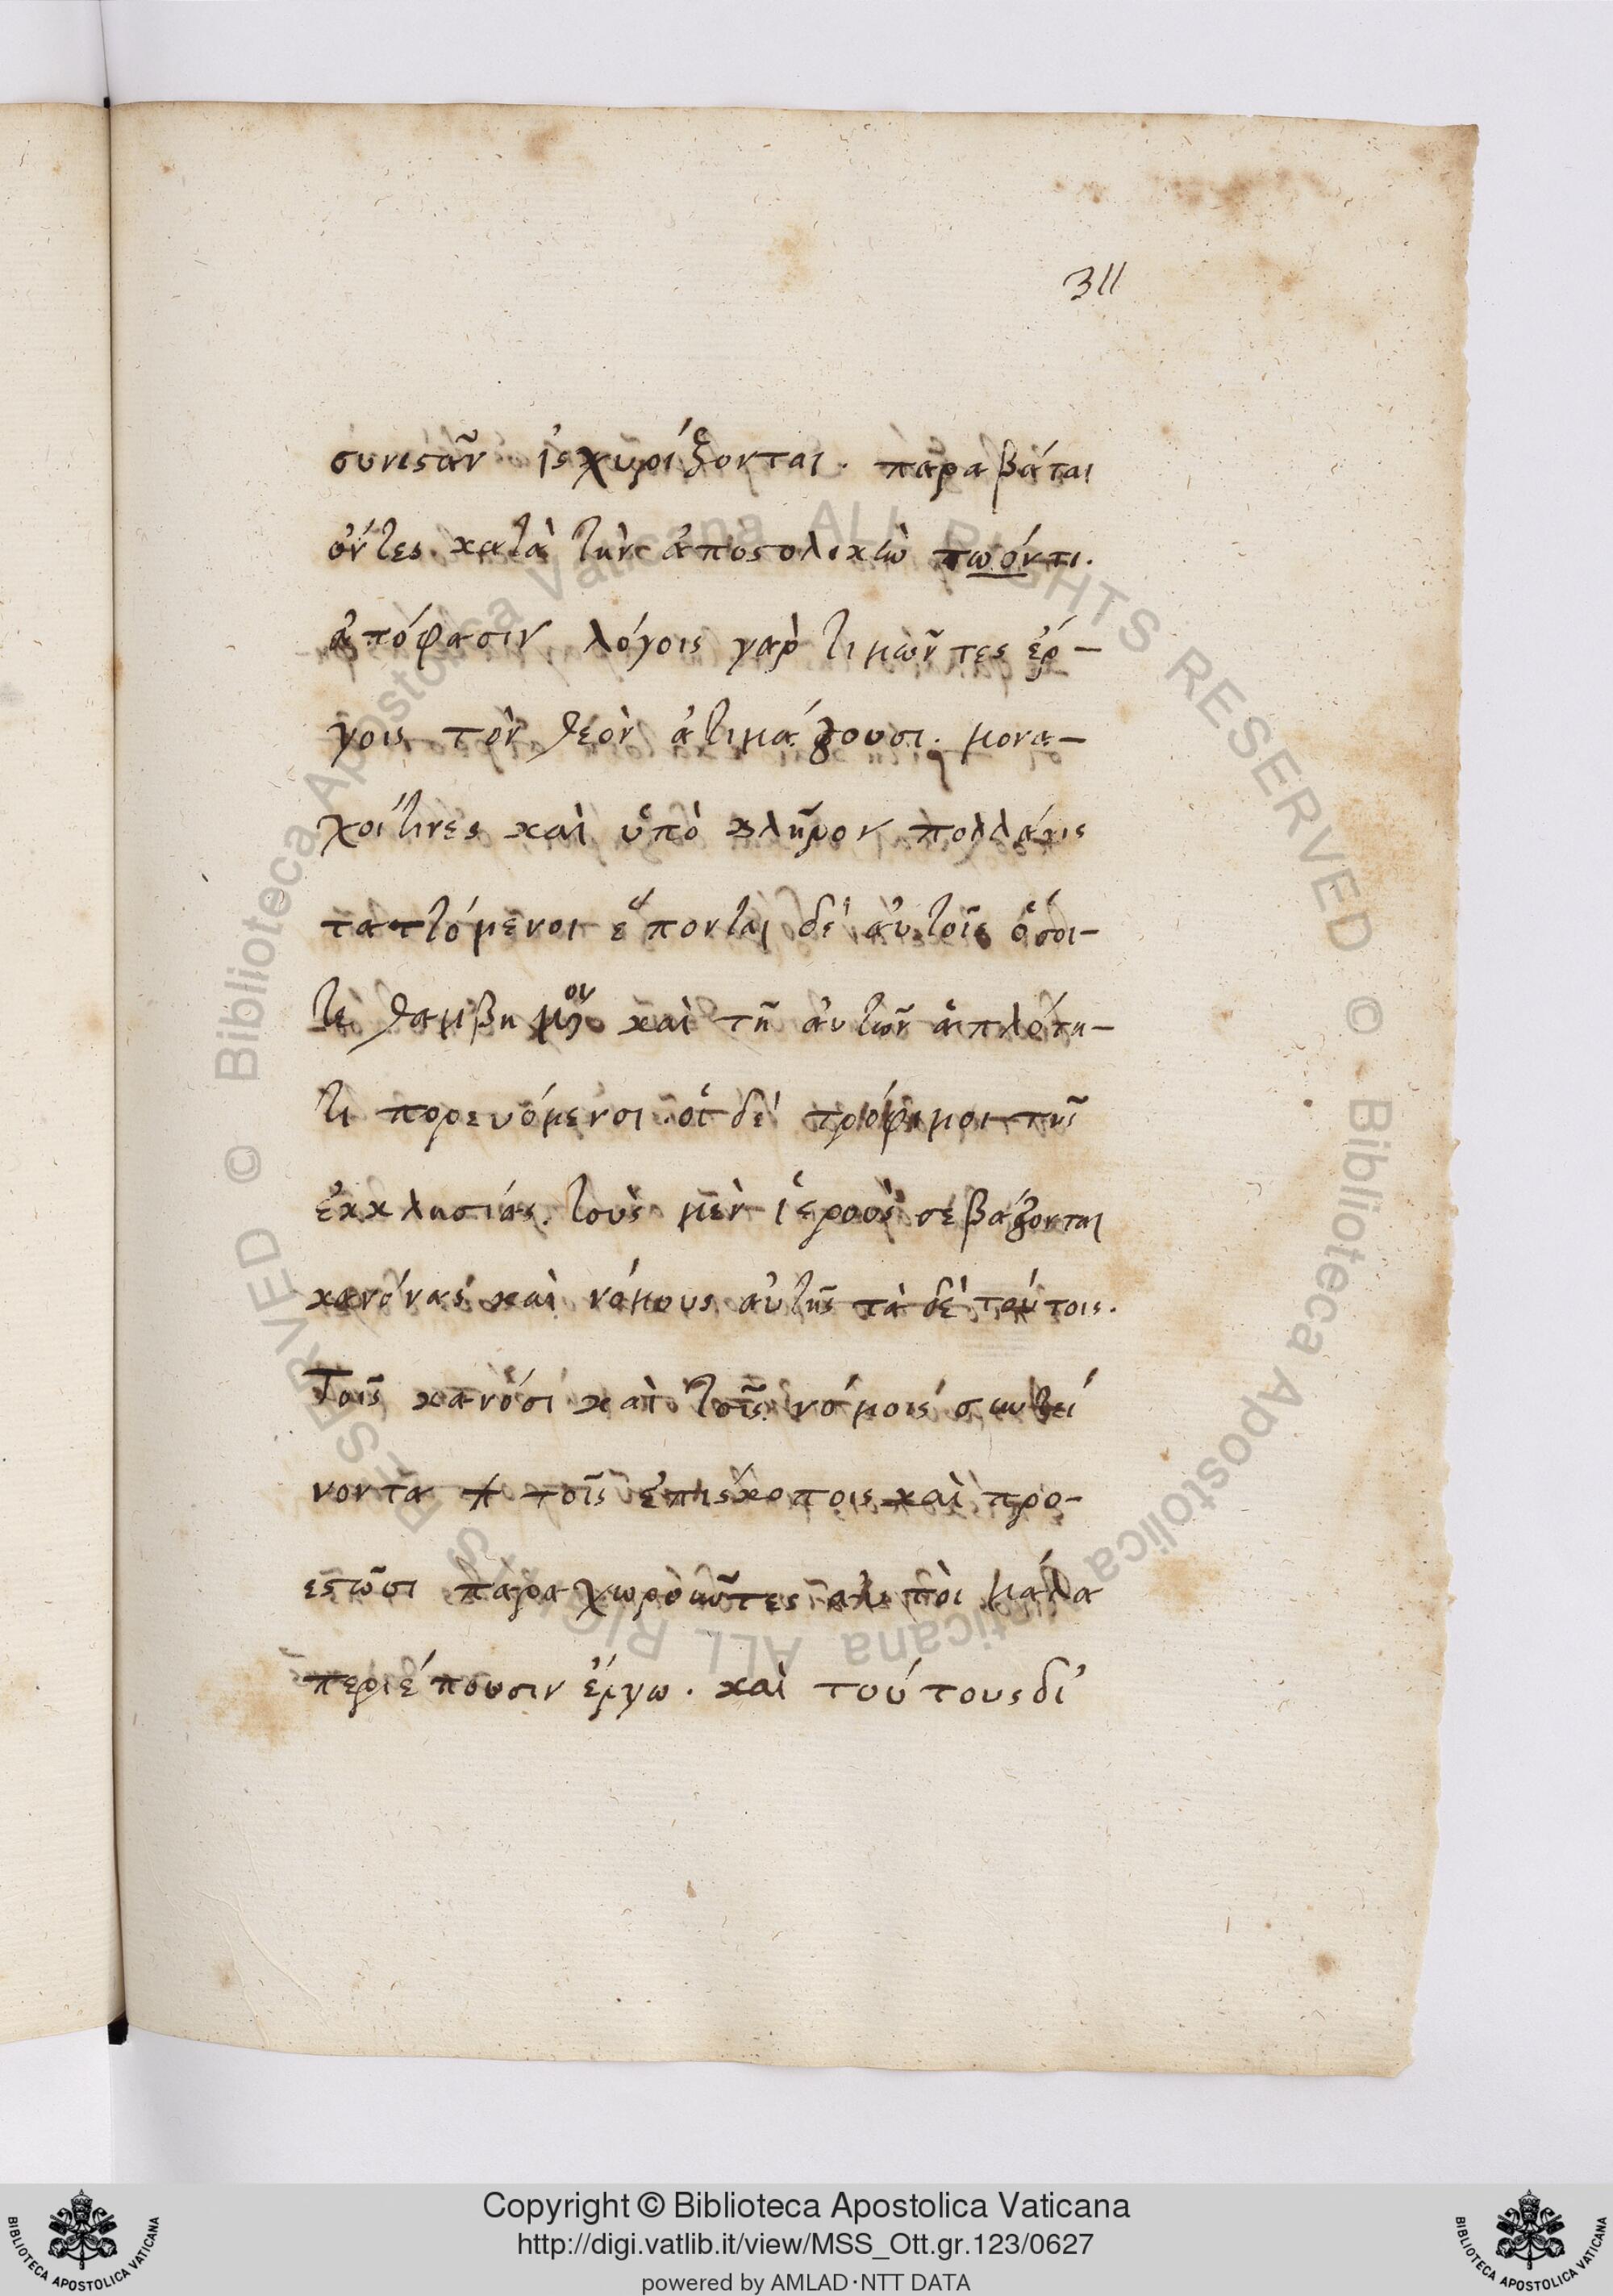 311
συνιςᾶν ἰςχυρίζονται. παραβάται
ὄντες κατὰ τὴν ἀποςολικὴν τωόντι.
ἀπόφασιν λόγοις γὰρ τιμῶντες ἔρ-
γοις τὸν θεὸν ἀτιμάζουσι. μονα-
χοίτινες καὶ ὑπὸ κλῆρον πολλάκις
ταττόμενοι ἕπονται δὲ ἀυτοῖς ὅσοι-
καὶ τῆ ἀυτῶν ἁπλότη-
τι πορευόμενοι οἱ δὲ τρόφιμοι τῆς
ἐκκλησιάς. τοὺς μὲν ἱεροὺς σεβάζονται
κανόνας καὶ νόμους αὐτῆς τὰ δὲ τούτοις.
Τοῖς κανόσι καὶ τοῖς νόμοις
νοντα τοῖς ἐπιςκοποις καὶ προ-
εςῶσι παραχωροῦντες μάλα
περιέπουσιν ἔργω. καὶ τούτους δι
Copyright © Biblioteca Apostolica Vaticana
http://digi.vatlib.it/view/MSS_Ott.gr.123/0627
powered by AMLAD·NTT DATA
BIBLIOTECA APOSTOLICA VATICANA
BIBLIOTECA APOSTOLICA VATICANA
© Biblioteca Apostolica Vaticana ALL RIGHTS RESERVED
© Biblioteca Apostolica Vaticana ALL RIGHTS RESERVED